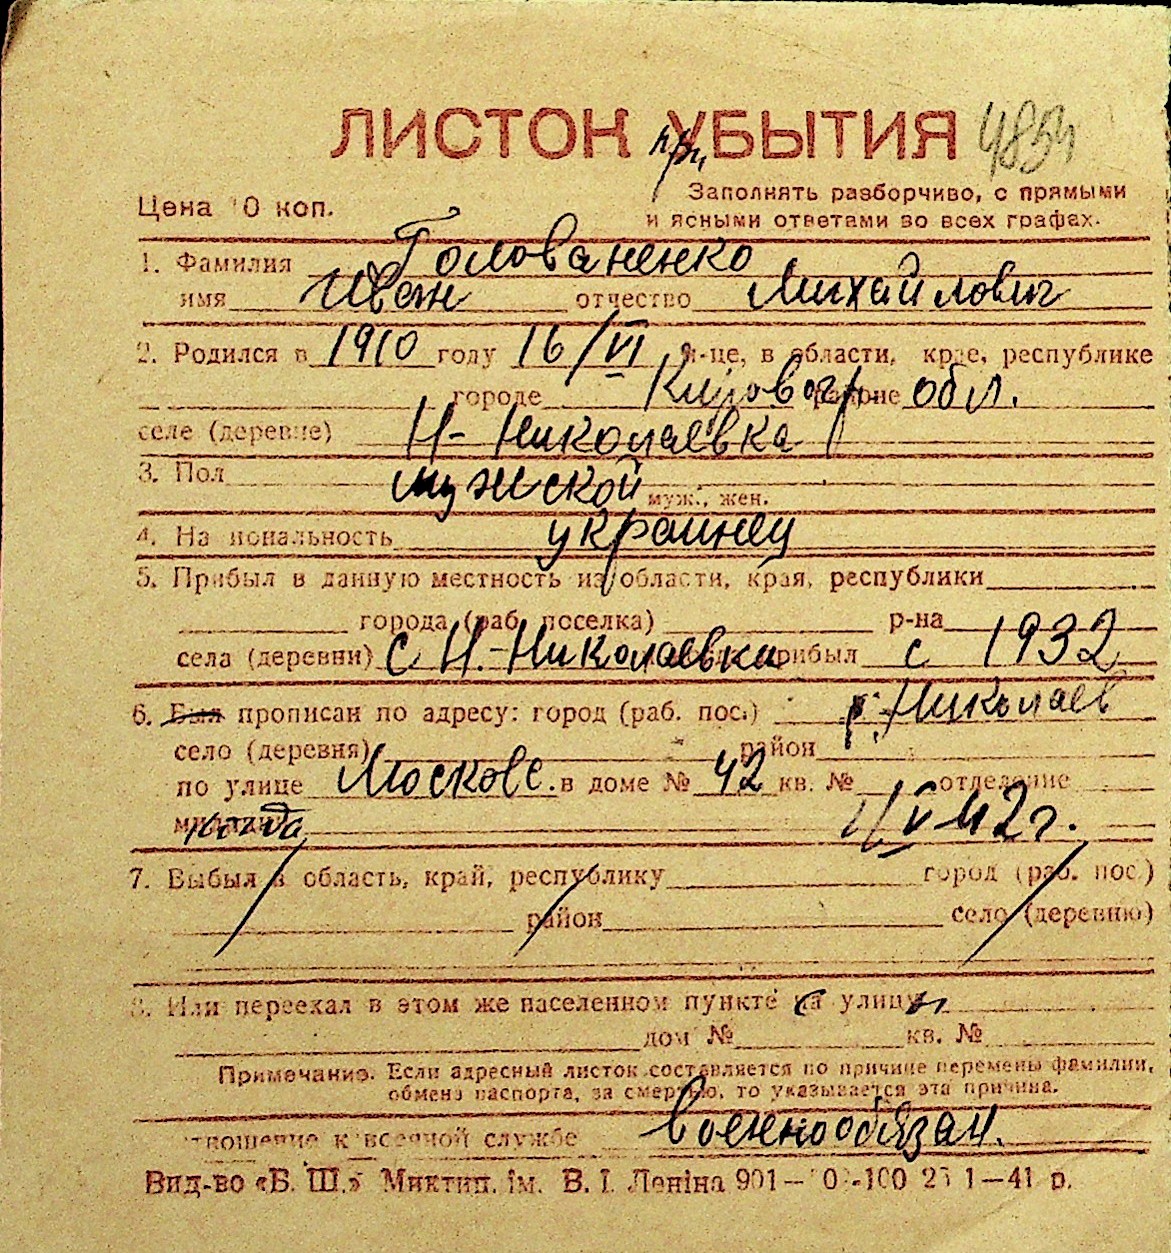 ЛИСТОК УБЫТИЯ 4854
при
Заполнять разборчиво, с прямыми
Цена 10 коп. и ясными ответами во всех графах.
1. Фамилия Голованенко
имя Иван отчество Михайлович
2. Родился в 1910 году 16/VI м-це, в области, крае, республике
городе Кировогр районе обл.
селе (деревне) Н-Николаевка
3. Пол мужской муж., жен.
4. Национальность украинец
5. Прибыл в данную местность из области, края, республики
города (раб. поселка) р-на
села (деревни) с Н.-Николаевки прибыл с 1932
6. Был прописан по адресу: город (раб. пос.) г. Николаев
село (деревня) район
по улице Московс. в доме № 42 кв. № отделение
милиции когда 1/V 42 г.
7. Выбыл в область, край, республику город (раб. пос.)
район село (деревню)
8. Или переехал в этом же населенном пункте на улицу
дом № кв. №
Примечание. Если адресный листок составляется по причине перемены фамилии,
обмена паспорта, за смертью, то указывается эта причина.
отношение к военной службе военнообязан.
Вид-во «Б. Ш.» Миктип. ім. В. І. Леніна 901— 1—41 р.